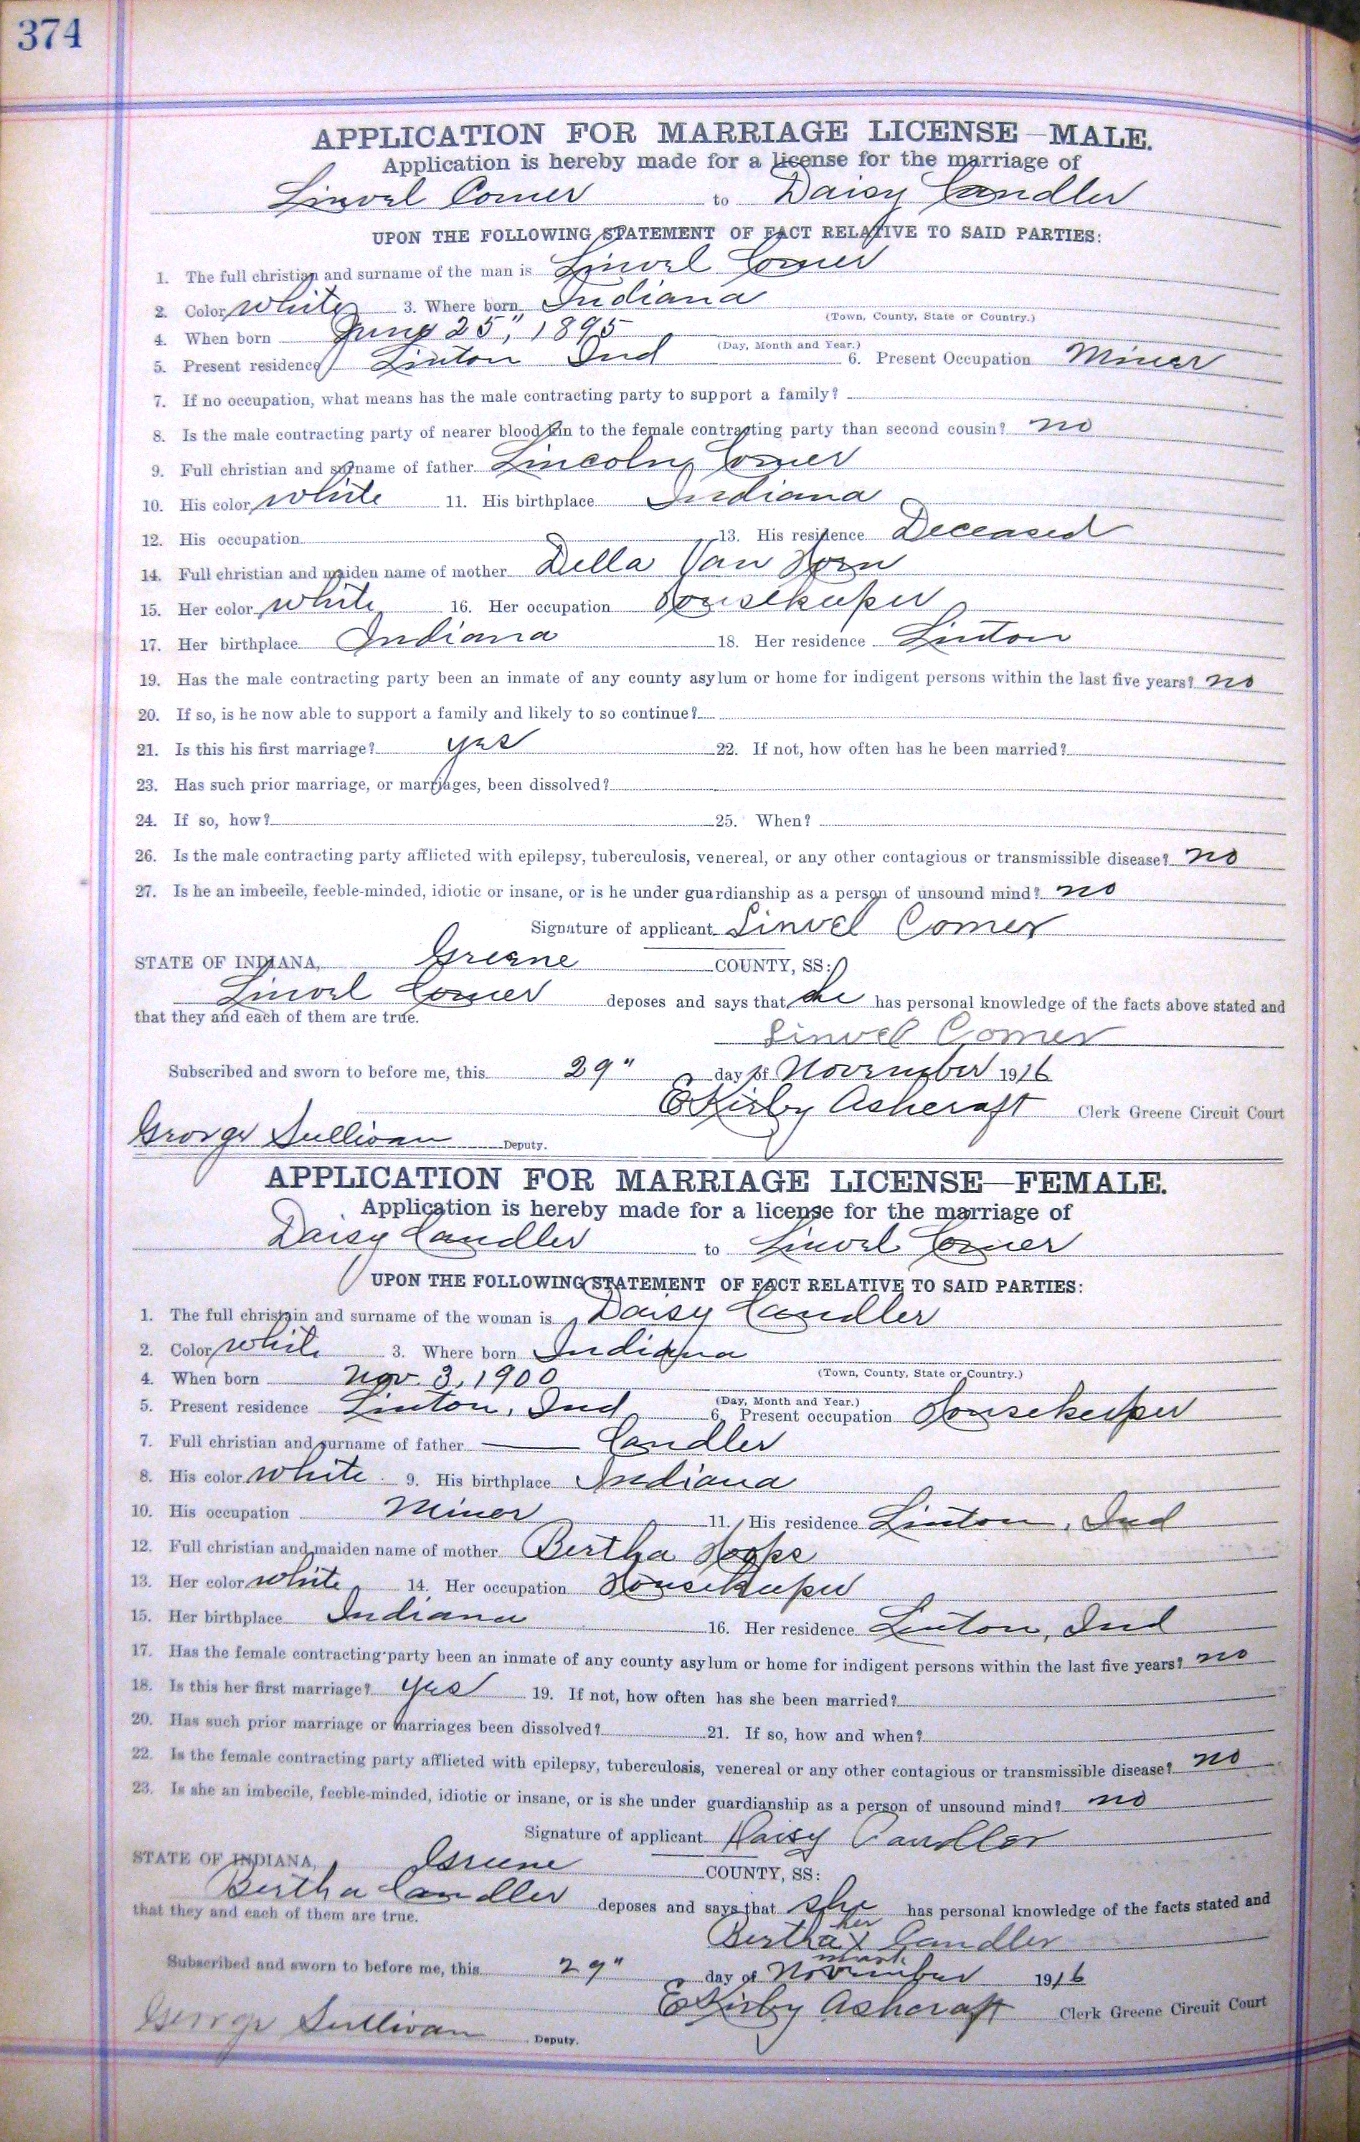 374
APPLICATION FOR MARRIAGE LICENSE—MALE.
Application is hereby made for a license for the marriage of
Linvel Comer to Daisy Candler
UPON THE FOLLOWING STATEMENT OF FACT RELATIVE TO SAID PARTIES:
1. The full christian and surname of the man is Linvel Comer
2. Color white 3. Where born Indiana
(Town, County, State or Country.)
4. When born June 25", 1895
(Day, Month and Year.)
5. Present residence Linton Ind 6. Present Occupation Miner
7. If no occupation, what means has the male contracting party to support a family?
8. Is the male contracting party of nearer blood kin to the female contracting party than second cousin? no
9. Full christian and surname of father Lincoln Comer
10. His color white 11. His birthplace Indiana
12. His occupation 13. His residence Deceased
14. Full christian and maiden name of mother Della Van Horn
15. Her color white 16. Her occupation Housekeeper
17. Her birthplace Indiana 18. Her residence Linton
19. Has the male contracting party been an inmate of any county asylum or home for indigent persons within the last five years? no
20. If so, is he now able to support a family and likely to so continue?
21. Is this his first marriage? yes 22. If not, how often has he been married?
23. Has such prior marriage, or marriages, been dissolved?
24. If so, how? 25. When?
26. Is the male contracting party afflicted with epilepsy, tuberculosis, venereal, or any other contagious or transmissible disease? no
27. Is he an imbecile, feeble-minded, idiotic or insane, or is he under guardianship as a person of unsound mind? no
Signature of applicant Linvel Comer
STATE OF INDIANA, Greene COUNTY, SS:
Linvel Comer deposes and says that he has personal knowledge of the facts above stated and
that they and each of them are true.
Linvel Comer
Subscribed and sworn to before me, this 29" day of November 1916
E Kirby Ashcraft Clerk Greene Circuit Court
George Sullivan Deputy.
APPLICATION FOR MARRIAGE LICENSE—FEMALE.
Application is hereby made for a license for the marriage of
Daisy Candler to Linvel Comer
UPON THE FOLLOWING STATEMENT OF FACT RELATIVE TO SAID PARTIES:
1. The full christain and surname of the woman is Daisy Candler
2. Color white 3. Where born Indiana
(Town, County, State or Country.)
4. When born Nov 3, 1900
(Day, Month and Year.)
5. Present residence Linton, Ind 6. Present occupation Housekeeper
7. Full christian and surname of father —— Candler
8. His color white 9. His birthplace Indiana
10. His occupation Miner 11. His residence Linton, Ind
12. Full christian and maiden name of mother Bertha
13. Her color white 14. Her occupation Housekeeper
15. Her birthplace Indiana 16. Her residence Linton, Ind
17. Has the female contracting party been an inmate of any county asylum or home for indigent persons within the last five years? no
18. Is this her first marriage? yes 19. If not, how often has she been married?
20. Has such prior marriage or marriages been dissolved? 21. If so, how and when?
22. Is the female contracting party afflicted with epilepsy, tuberculosis, venereal or any other contagious or transmissible disease? no
23. Is she an imbecile, feeble-minded, idiotic or insane, or is she under guardianship as a person of unsound mind? no
Signature of applicant Daisy Candler
STATE OF INDIANA, Greene COUNTY, SS:
Bertha Candler deposes and says that she has personal knowledge of the facts stated and
that they and each of them are true.
her
Bertha X Candler
mark
Subscribed and sworn to before me, this 29" day of November 1916
E Kirby Ashcraft Clerk Greene Circuit Court
George Sullivan Deputy.